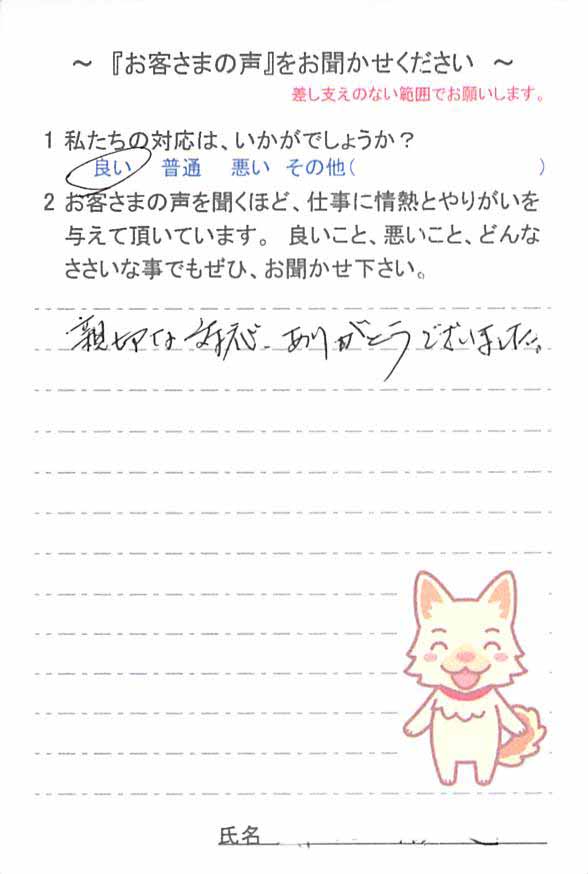 ～『お客さまの声』をお聞かせください ～
差し支えのない範囲でお願いします。
1 私たちの対応は、いかがでしょうか？
良い 普通 悪い その他( )
2 お客さまの声を聞くほど、仕事に情熱とやりがいを
与えて頂いています。 良いこと、悪いこと、どんな
ささいな事でもぜひ、お聞かせ下さい。
親切な対応、ありがとうございました。
氏名